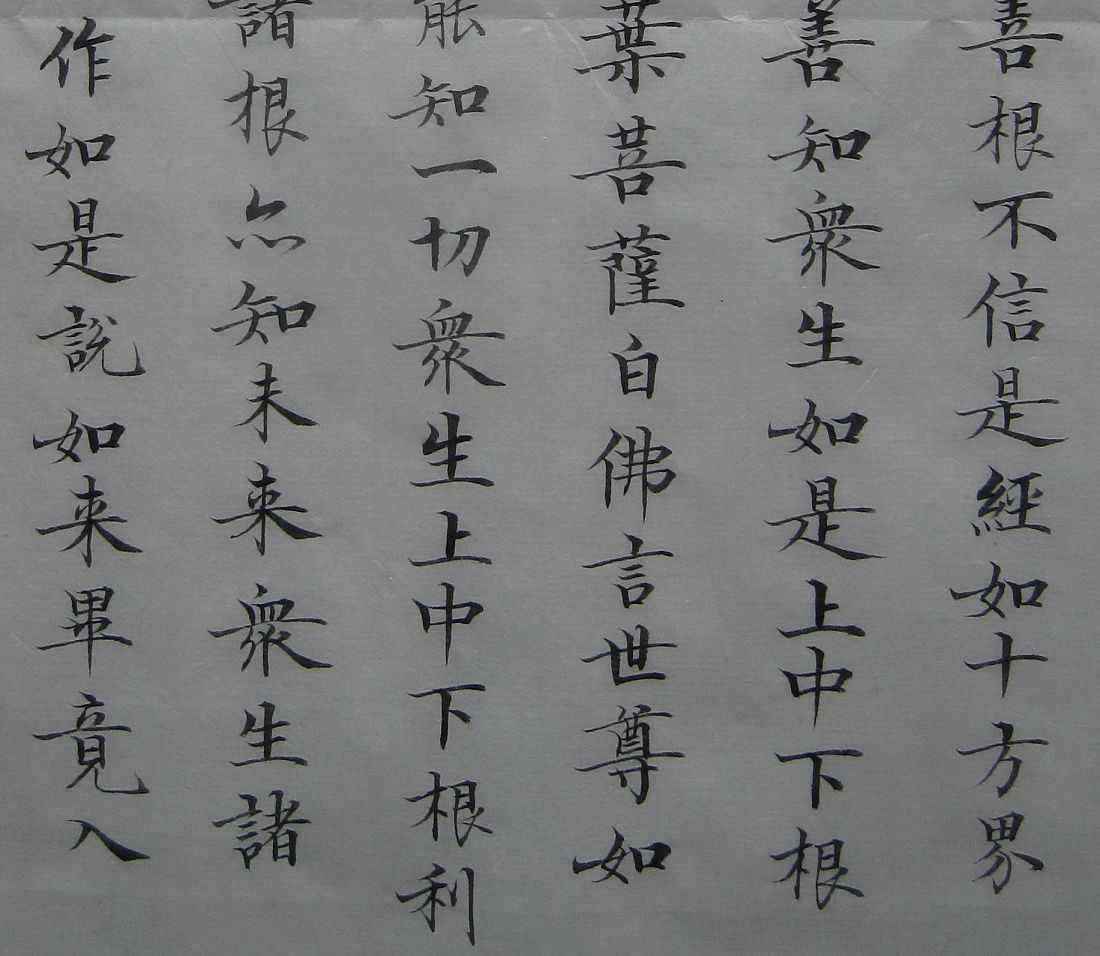 善根不信是經如十方界
善知衆生如是上中下根
葉菩薩白佛言世尊如
能知一切衆生上中下根利
諸根亦知未来衆生諸
作如是説如来畢竟入